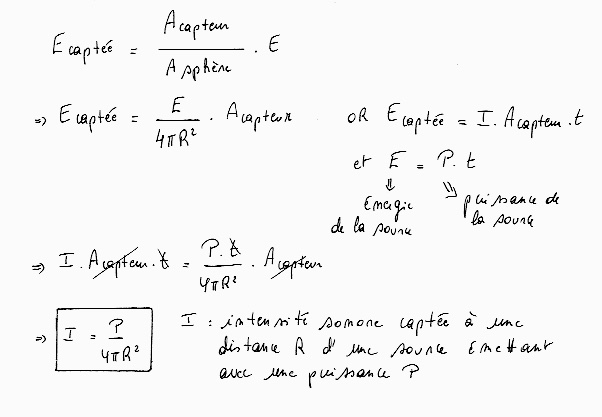 E captée = A capteur / A sphère . E
=> E captée = E / 4πR² . A capteur
OR E captée = I. A capteur . t
et E = P. t
⇓ énergie de la source
⇓ puissance de la source
=> I . A capteur . t = P. t / 4πR² . A capteur
=> I = P / 4πR²
I : intensité sonore captée à une
distance R d'une source émettant
avec une puissance P